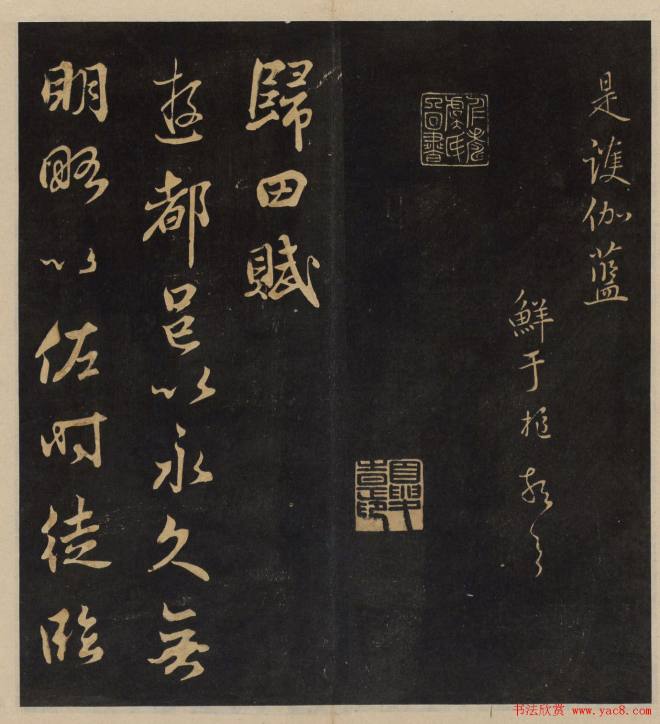 是護伽藍
鮮于枢
歸田賦
遊都邑以永久無
明略以佐時徒臨
书法欣赏 www.yac8.com